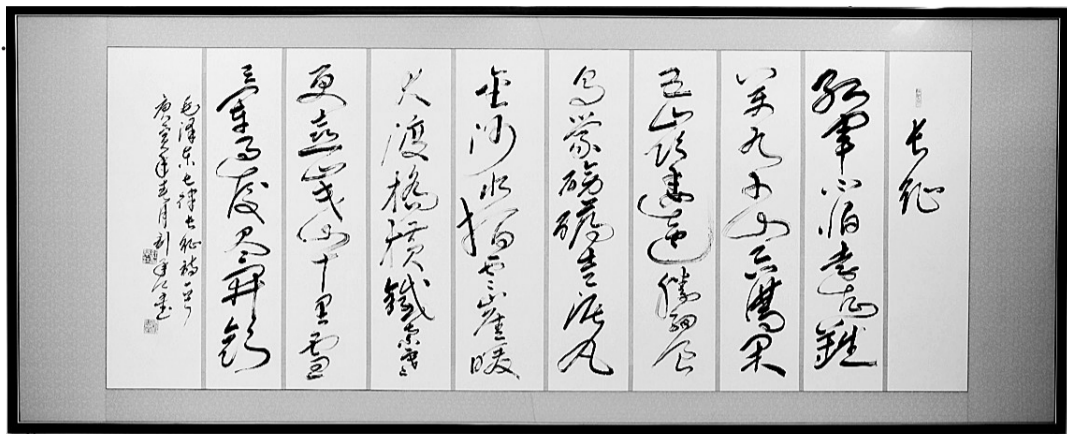 長征
紅軍不怕遠征難
萬水千山只等閑
五嶺逶迤騰細浪
烏蒙磅礴走泥丸
金沙水拍雲崖暖
大渡橋橫鐵索寒
更喜岷山千里雪
三軍過後盡開顏
毛澤東七律長征詩一首
庚寅年 月劉 書